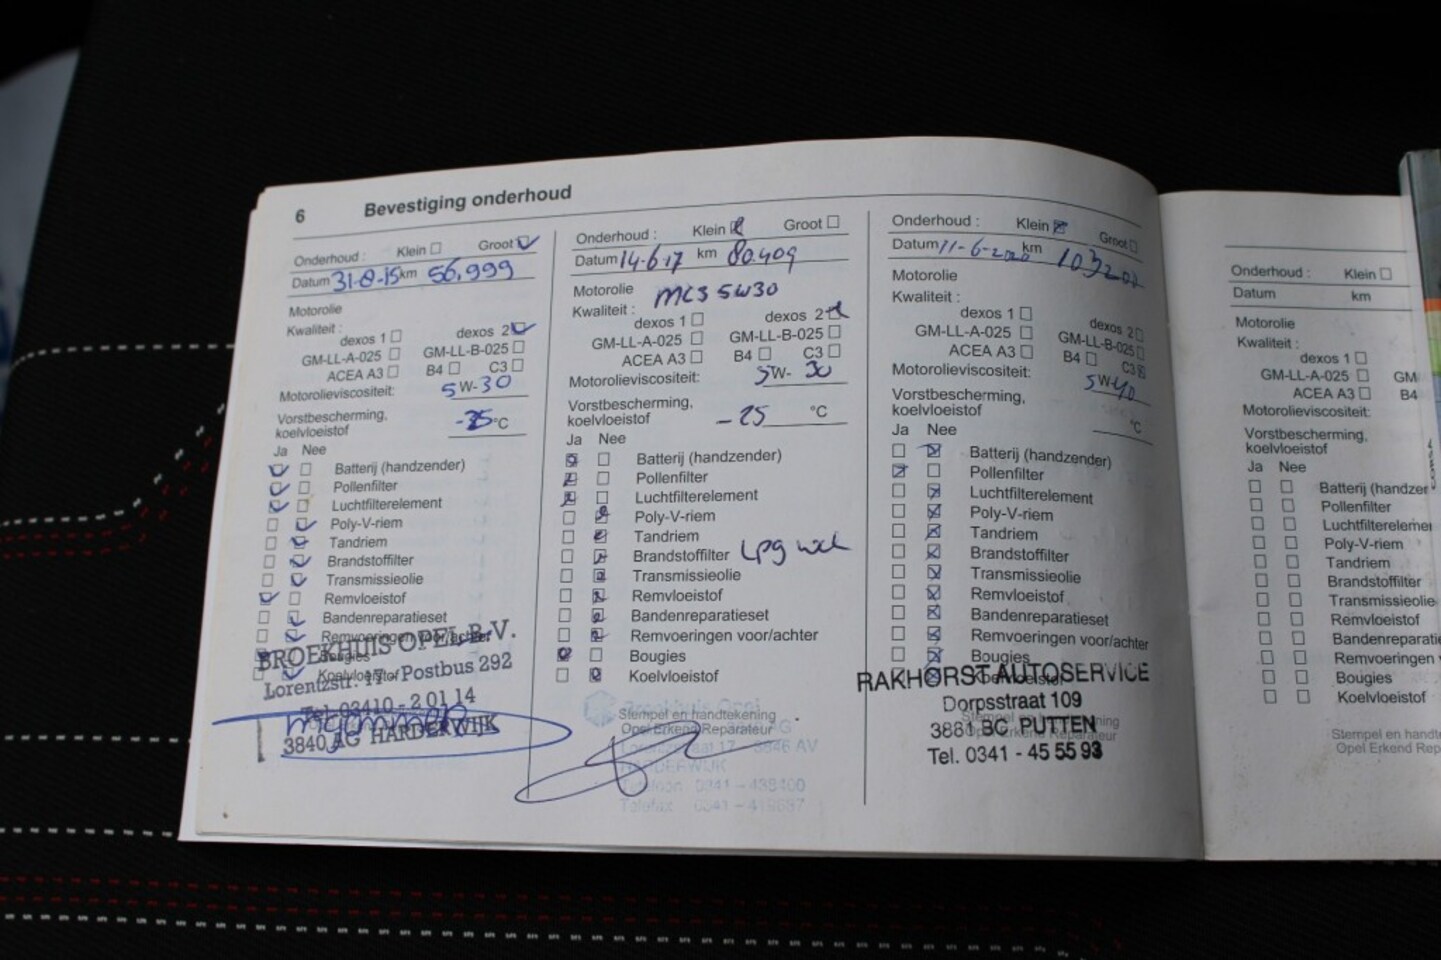 6 Bevestiging onderhoud
Onderhoud : Klein Groot
Datum 31-8-15 km 56.999
Motorolie
Kwaliteit :
dexos 1 dexos 2
GM-LL-A-025 GM-LL-B-025
ACEA A3 B4 C3
Motorolieviscositeit: 5 W- 30
Vorstbescherming,
koelvloeistof -25 °C
Ja Nee
Batterij (handzender)
Pollenfilter
Luchtfilterelement
Poly-V-riem
Tandriem
Brandstoffilter
Transmissieolie
Remvloeistof
Bandenreparatieset
Remvoeringen voor/achter
Bougies
Koelvloeistof
BROEKHUIS OPEL B.V.
Lorentzstr. 17 - Postbus 292
Tel. 03410 - 2 01 14
3840 AG HARDERWIJK
Onderhoud : Klein Groot
Datum 14-6-17 km 80.409
Motorolie MC3 5W30
Kwaliteit :
dexos 1 dexos 2
GM-LL-A-025 GM-LL-B-025
ACEA A3 B4 C3
Motorolieviscositeit: 5 W- 30
Vorstbescherming,
koelvloeistof -25 °C
Ja Nee
Batterij (handzender)
Pollenfilter
Luchtfilterelement
Poly-V-riem
Tandriem
Brandstoffilter Lpg
Transmissieolie
Remvloeistof
Bandenreparatieset
Remvoeringen voor/achter
Bougies
Koelvloeistof
Stempel en handtekening
Opel Erkend Reparateur
HARDERWIJK
Telefoon 0341 - 438400
Onderhoud : Klein Groot
Datum 11-6-2020 km 103200
Motorolie
Kwaliteit :
dexos 1 dexos 2
GM-LL-A-025 GM-LL-B-025
ACEA A3 B4 C3
Motorolieviscositeit: 5 W- 40
Vorstbescherming,
koelvloeistof °C
Ja Nee
Batterij (handzender)
Pollenfilter
Luchtfilterelement
Poly-V-riem
Tandriem
Brandstoffilter
Transmissieolie
Remvloeistof
Bandenreparatieset
Remvoeringen voor/achter
Bougies
Koelvloeistof
RAKHORST AUTOSERVICE
Dorpsstraat 109
Stempel en handtekening
3881 BC PUTTEN
Opel Erkend Reparateur
Tel. 0341 - 45 55 93
Onderhoud : Klein
Datum km
Motorolie
Kwaliteit :
dexos 1
GM-LL-A-025 GM
ACEA A3 B4
Motorolieviscositeit:
Vorstbescherming,
koelvloeistof
Ja Nee
Batterij (handzer
Pollenfilter
Luchtfilterelemer
Poly-V-riem
Tandriem
Brandstoffilter
Transmissieolie
Remvloeistof
Bandenreparati
Remvoeringen
Bougies
Koelvloeistof
Stempel en handt
Opel Erkend Rep